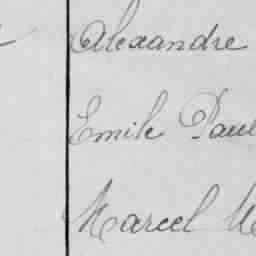 Alexandre
Emile Paul
Marcel